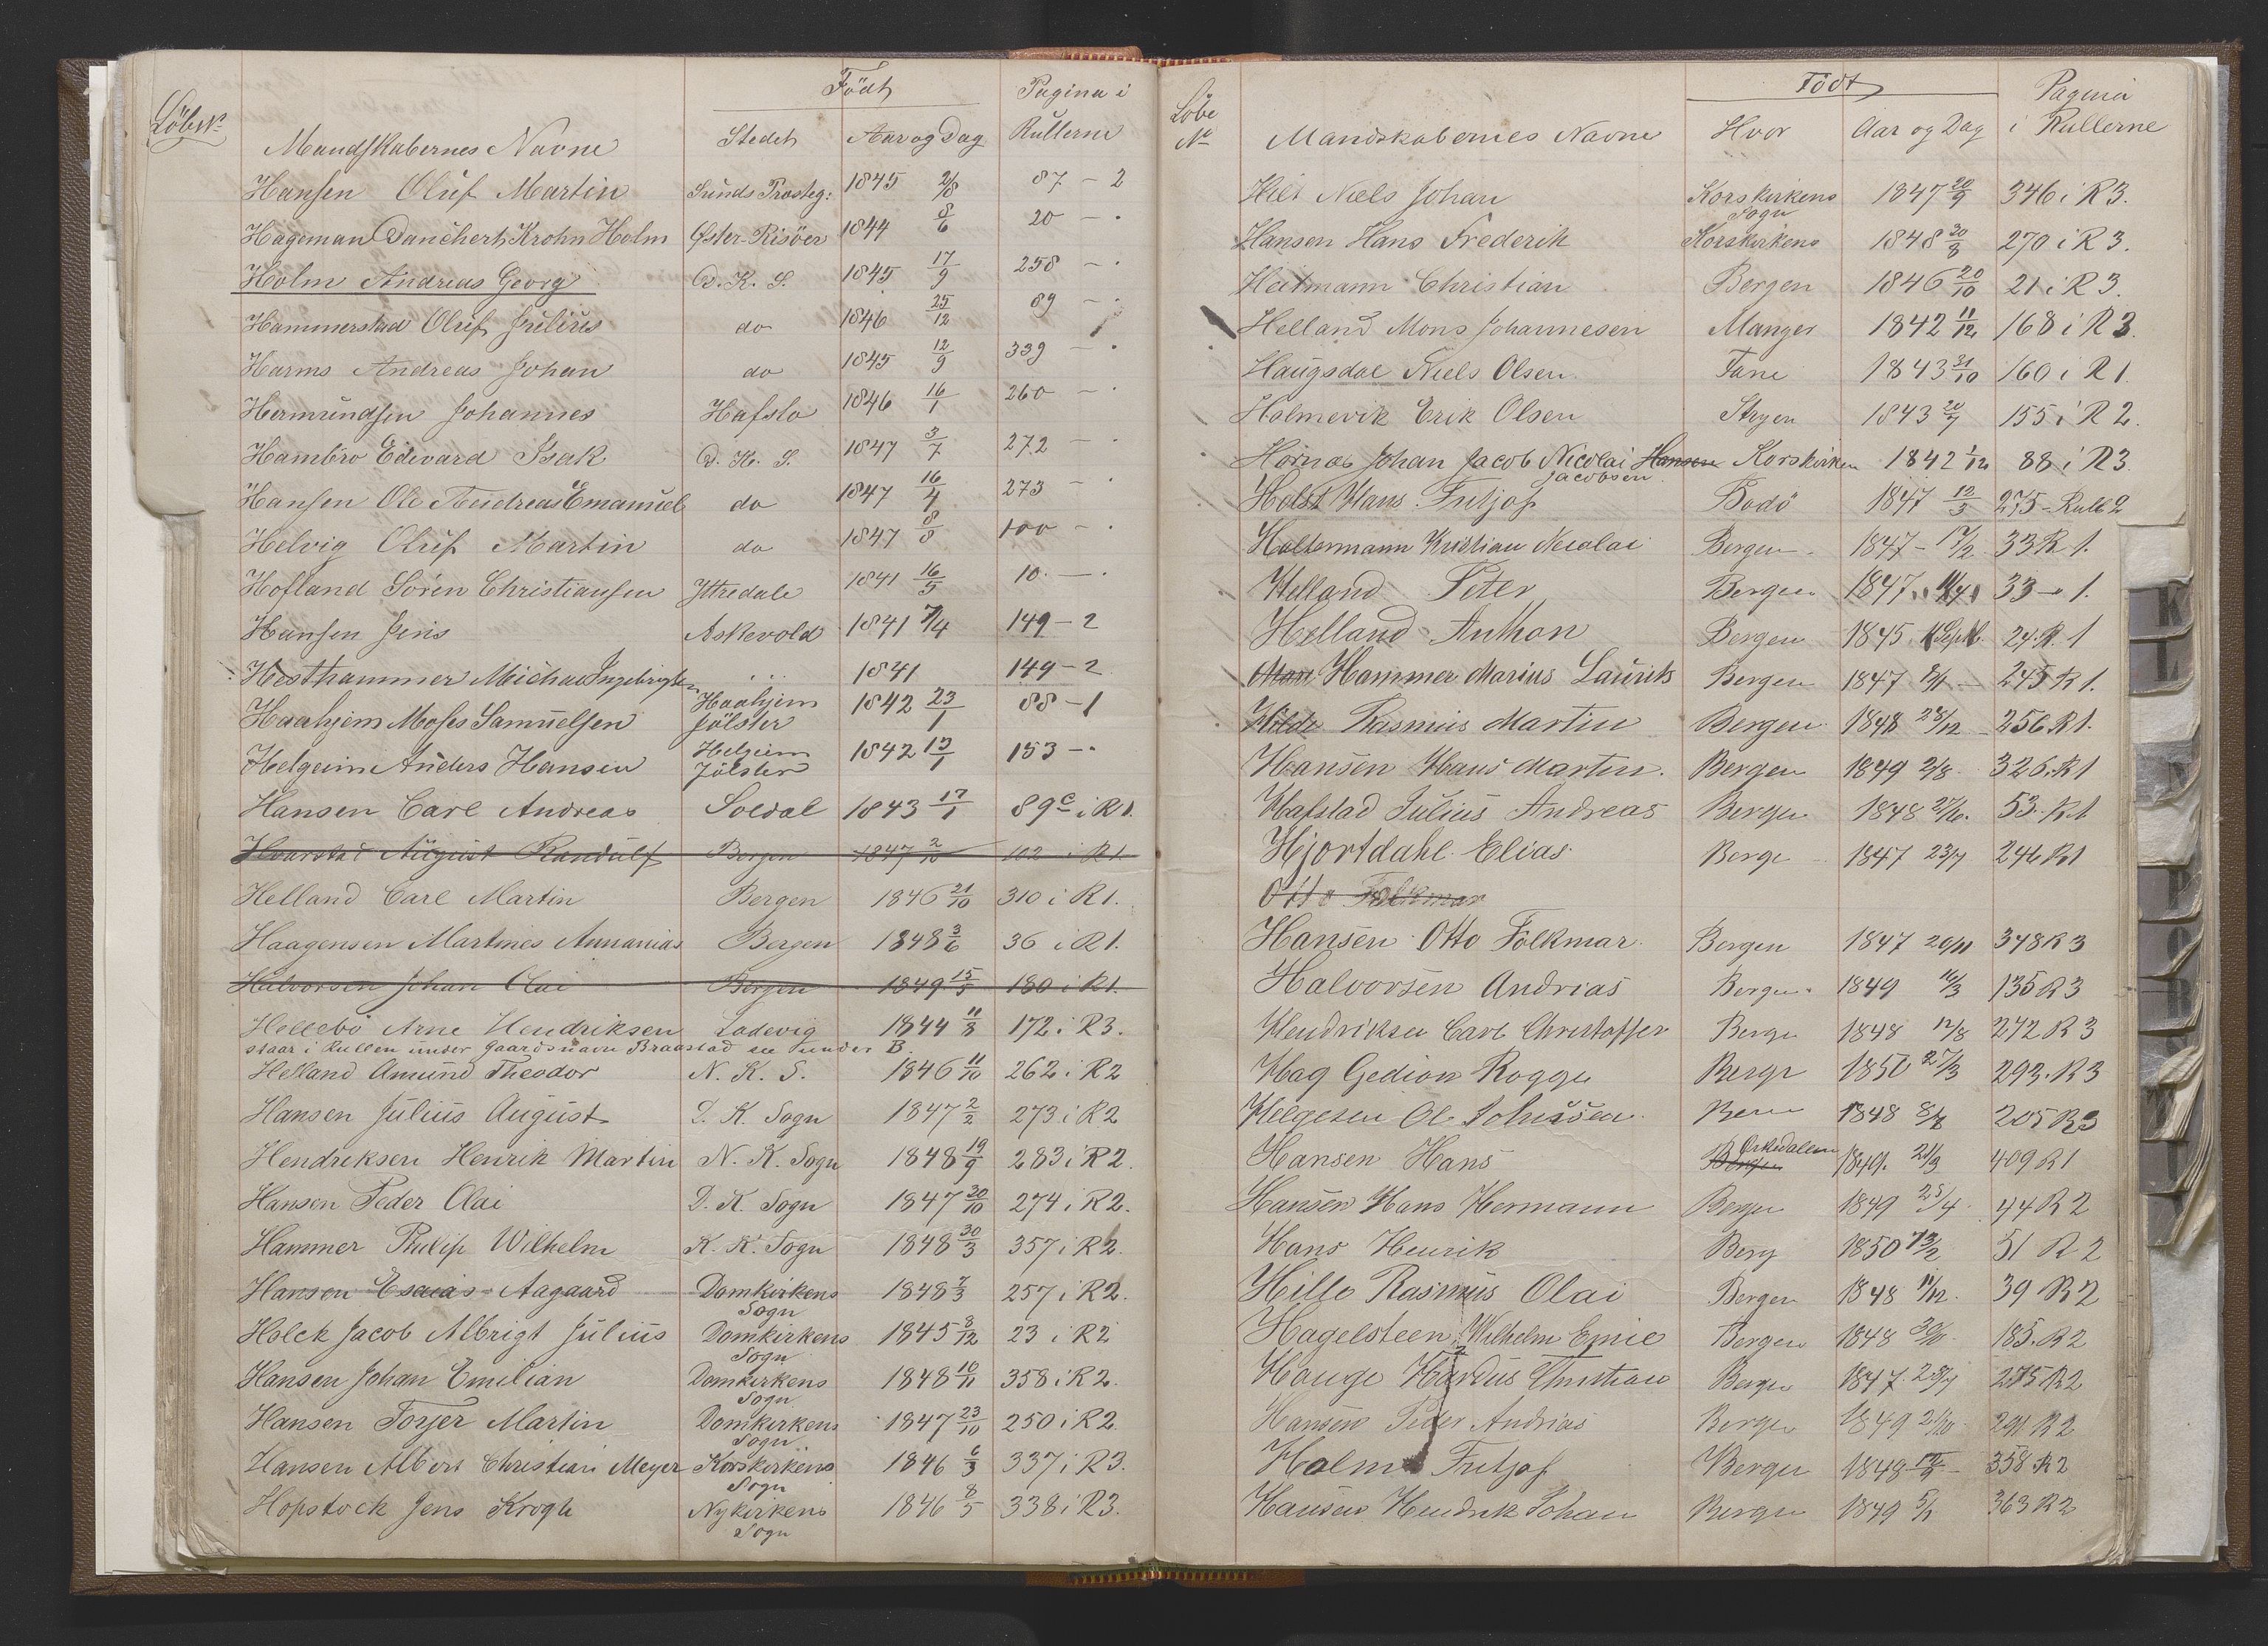 Födt
Löbe No Mandskabernes Navne Stedet Aar og Dag Pagina i Rullerne
Hansen Oluf Martin Sunds Prosteg: 1845 2/8 87 - 2
Hageman Danchert Krohn Holm Øster-Risöer 1844 8/6 20 - "
Holm Andreas Georg D. K. S. 1845 17/9 258 - "
Hammerstad Oluf Julius do 1846 25/12 89 - "
Harms Andreas Johan do 1845 12/9 339 - "
Hermundsen Johannes Hafslo 1846 16/1 260 - "
Hambro Edvard Isak D. K. S. 1847 3/7 272 - "
Hansen Ole Andreas Emanuel do 1847 16/4 273 - "
Helvig Oluf Martin do 1847 8/8 100 - "
Hofland Sören Christiansen Yttredale 1841 16/5 10. - "
Hansen Jens Askevold 1841 7/4 149 - 2
Hesthammer Michael Ingebrigtsen " " " 1841 149 - 2
Haahjem Moses Samuelsen Haahjem Jölster 1842 23/1 88 - 1
Helgeim Anders Hansen Helgeim Jölster 1842 13/1 153 - "
Hansen Carl Andreas Soldal 1843 17/1 89c i R1.
Havrstad August Randulf Bergen 1847 2/10 102 i R1
Helland Carl Martin Bergen 1846 21/10 310 i R1.
Haagensen Martines Annanias Bergen 1848 3/6 36 i R1.
Halvorsen Johan Olai Bergen 1849 15/5 180 i R1.
Hellebö Arne Hendriksen Ladevig 1844 11/8 172 i R3.
staar i Rullen under Gaardsnavn Braastad see under B.
Helland Amund Theodor N. K. S. 1846 11/10 262 i R2
Hansen Julius August D. K. Sogn 1847 2/2 273 i R2
Hendriksen Henrik Martin N. K. Sogn 1848 19/9 283 i R2.
Hansen Peder Olai D. K. Sogn 1847 30/10 274 i R2.
Hammer Philip Wilhelm K. K. Sogn 1848 30/3 357 i R2.
Hansen Esaias Aagaard Domkirkens Sogn 1848 7/3 257 i R2.
Holck Jacob Albrigt Julius Domkirkens Sogn 1845 8/12 23 i R2
Hansen Johan Emilian Domkirkens Sogn 1848 10/11 358 i R2.
Hansen Torjer Martin Domkirkens Sogn 1847 23/10 250 i R2
Hansen Albert Christian Meyer Korskirkens Sogn 1846 6/3 337 i R3.
Hopstock Jens Krogh Nykirkens Sogn 1846 8/5 338 i R3.
Födt
Löbe No Mandskabernes Navne Hvor Aar og Dag Pagina i Rullerne
Hilt Niels Johan Korskirkens Sogn 1847 20/9 346 i R3.
Hansen Hans Frederik Korskirkens 1848 30/8 270 i R3.
Heitmann Christian Bergen 1846 20/10 21 i R3.
Helland Mons Johannesen Manger 1842 11/12 168 i R3.
Haugsdal Niels Olsen Fane 1843 31/10 160 i R1.
Holmevik Erik Olsen Stryen 1843 20/7 155 i R2.
Hornæs Johan Jacob Nicolai Hansen Korskirken 1842 1/12 88 i R3.
Jacobsen
Holst Hans Fritjof Bodö 1847 12/3 275 - Rull 2
Holtermann Kristian Nicolai Bergen 1847 - 17/2 33 R 1.
Helland Peter Bergen 1847 33 - 1.
Helland Anthon Bergen 1845 1 Septb. 24. R. 1
Hammer Marius Laurits Bergen 1847 245 R 1.
Hilde Rasmus Martin Bergen 1848 28/12 256 R1.
Hansen Hans Martin. Bergen 1849 2/8 326. R1
Hafstad Julius Andreas Bergen 1848 27/10. 53. R1
Hjortdahl Elias Berge 1847 23/7 246 R1
Otto Folkmar
Hansen Otto Folkmar Bergen 1847 20/11 348 R3
Halvorsen Andrias Bergen 1849 16/3 135 R3
Hendriksen Carl Christoffer Berge 1848 12/8 242 R3
Hag Gedion Rogge Berge 1850 27/3 293. R3
Helgesen Ol. Johnssen 1848 8/8 205 R3
Hansen Hans Bergen Orkedalen 1849. 21/3 409 R1
Hansen Hans Hermann Bergen 1849 25/4 44 R2
Hans Henrik Berg 1850 13/2 51 R2
Hille Rasmus Olai Bergen 1848 11/12. 39 R2
Hagelsteen Wilhelm Emil Bergen 1848 30/10 185. R2
Hauge Christian Bergen 1847 28/7 275 R2
Hansen Peder Andrias Bergen 1849 2/10 291 R2
Holm Fritjof Bergen 1848 358 R2
Hansen Hendrik Johan Bergen 1849 5/1 363 R2
K
L
N
P
R
T